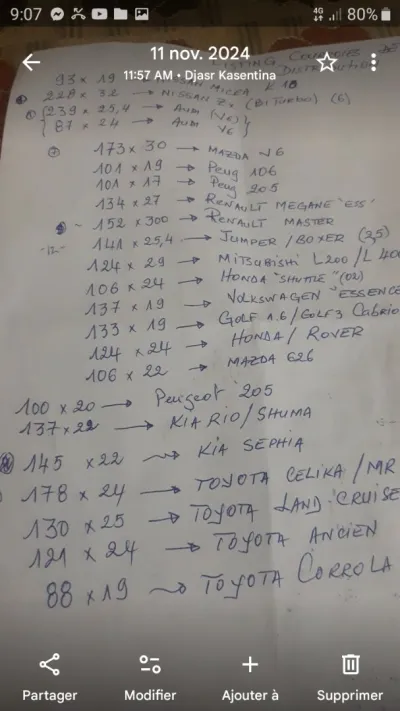 9:07
4G
80%
11 nov. 2024
11:57 AM • Djasr Kasentina
LISTING COURROIES DE
DISTRIBUTION
93 x 19 → NISSAN MICRA K10
228 x 32 → NISSAN Zx (BiTURBO) (6)
{239 x 25,4 → AUDI (V6)}
{87 x 24 → AUDI V6}
173 x 30 → MAZDA V6
101 x 19 → Peug 106
101 x 17 → Peug 205
134 x 27 → RENAULT MEGANE "ESS"
152 x 300 → RENAULT MASTER
141 x 25,4 → JUMPER / BOXER (35)
124 x 29 → MITSUBISHI L200 / L 400
106 x 24 → HONDA "SHUTTLE" (02)
137 x 19 → VOLKSWAGEN "ESSENCE
133 x 19 → GOLF 1.6 / GOLF 3 Cabrio
124 x 24 → HONDA / ROVER
106 x 22 → MAZDA 626
100 x 20 → Peugeot 205
137 x 22 → KIA RIO / SHUMA
145 x 22 → KIA SEPHIA
178 x 24 → TOYOTA CELIKA / MR
130 x 25 → TOYOTA LAND-CRUISE
121 x 24 → TOYOTA ANCIEN
88 x 19 → TOYOTA CORROLA
Partager
Modifier
Ajouter à
Supprimer